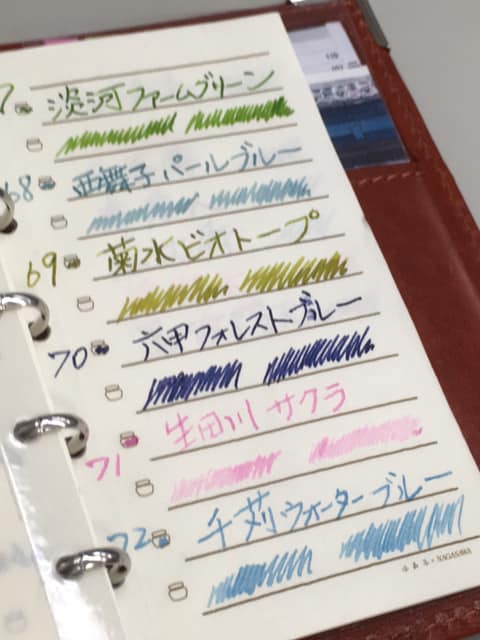 7 淡河ファームグリーン
68 西舞子パールブルー
69 菊水ビオトープ
70 六甲フォレストブルー
71 生田川サクラ
72 千苅ウォーターブルー
NAGASAWA